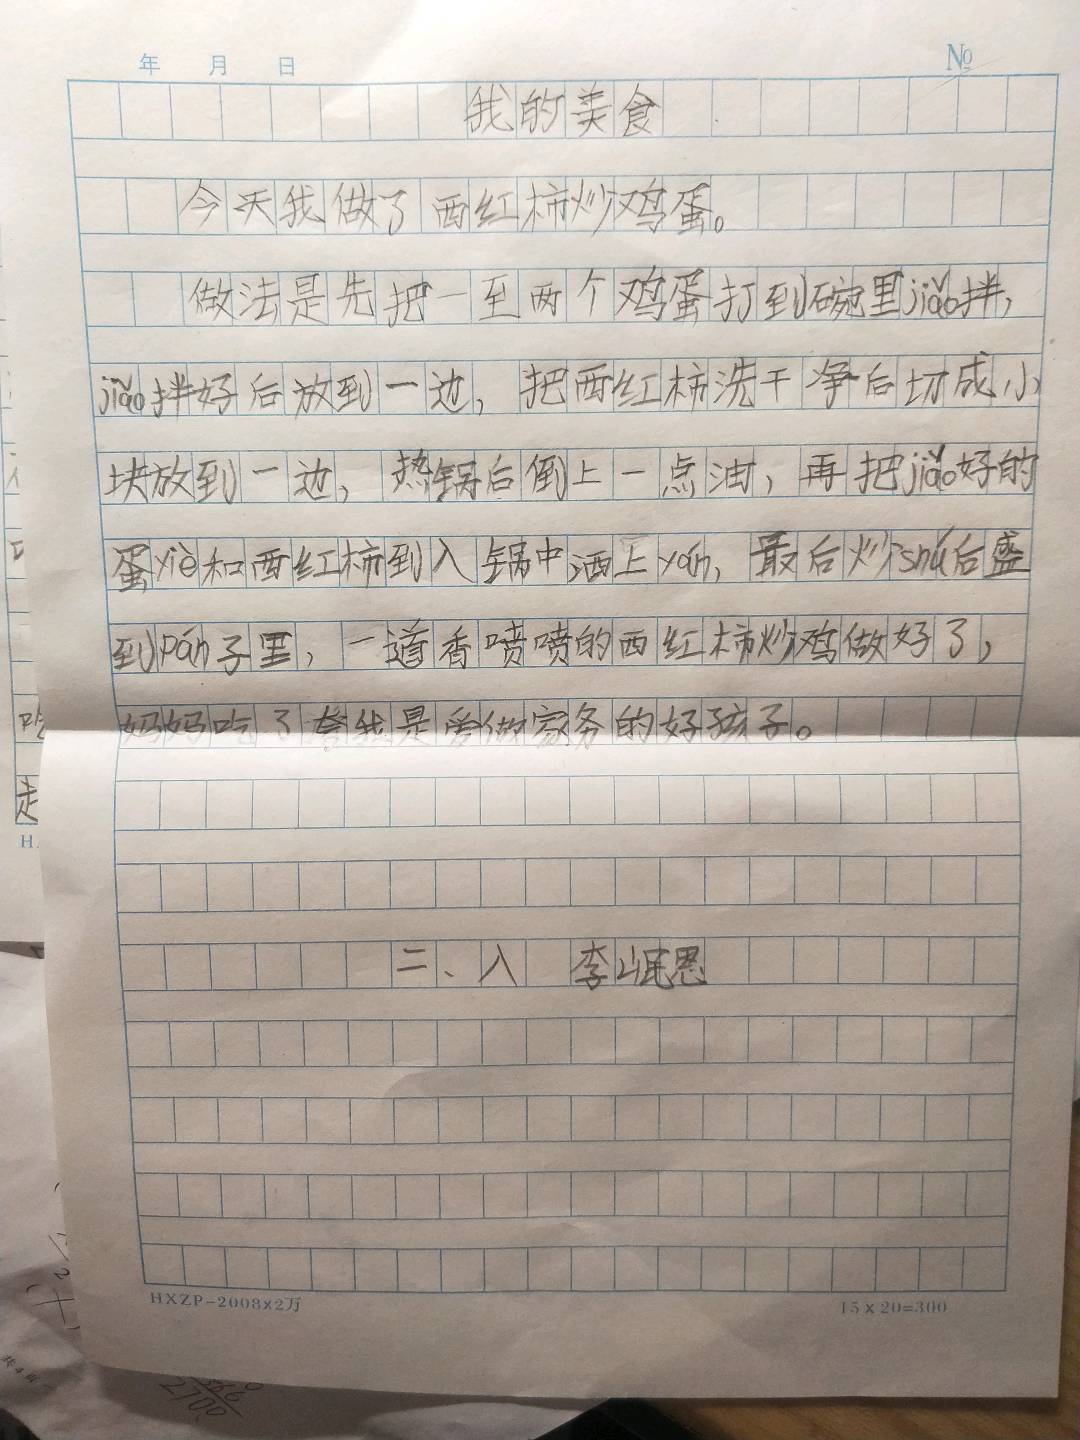 年 月 日 №
我的美食
今天我做了西红柿炒鸡蛋。
做法是先把一至两个鸡蛋打到碗里jiǎo拌,
jiǎo拌好后放到一边,把西红柿洗干净后切成小
块放到一边,热锅后倒上一点油,再把jiǎo好的
蛋yiè和西红柿到入锅中洒上yán,最后炒shú后盛
到pán子里,一道香喷喷的西红柿炒鸡做好了,
妈妈吃了夸我是爱做家务的好孩子。
二、入 李岷恩
HXZP-2008×2万 15×20=300
走
2700